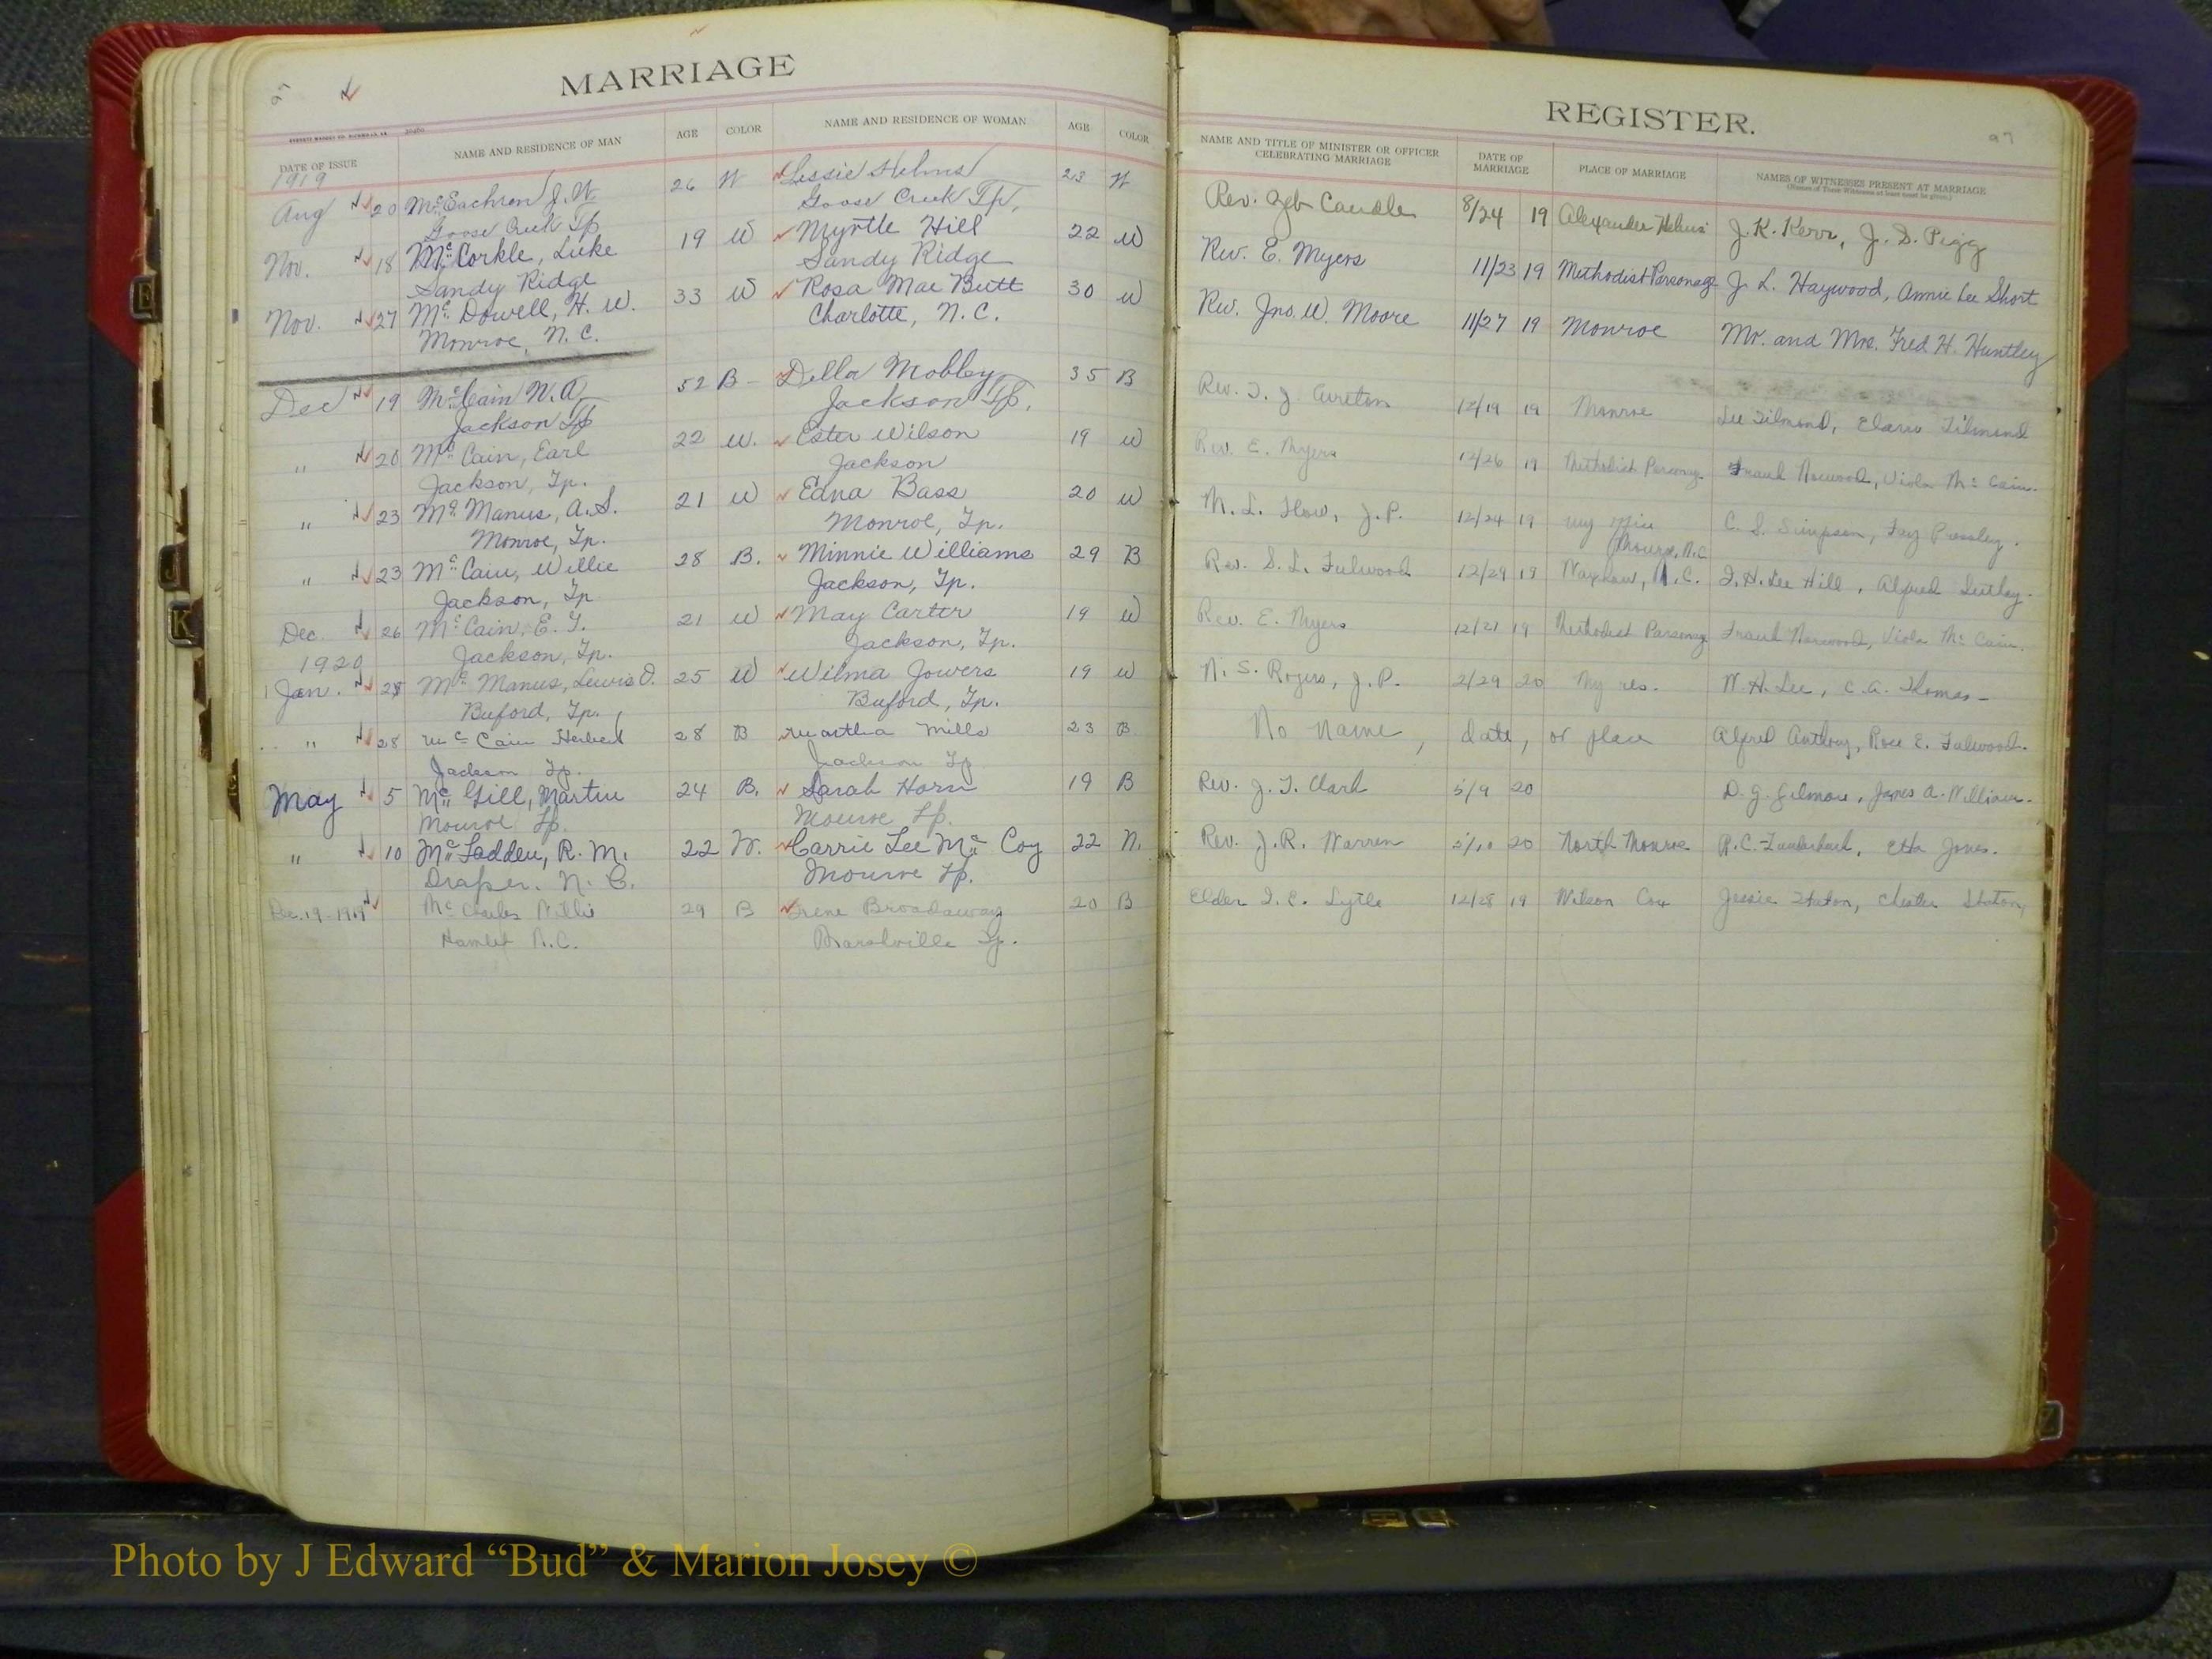 MARRIAGE
97
DATE OF ISSUE NAME AND RESIDENCE OF MAN AGE COLOR NAME AND RESIDENCE OF WOMAN AGE COLOR
1919
Aug 20 McEachren J. W. 26 W Lessie Helms 23 W
Goose Creek Tp Goose Creek Tp.
Nov. 18 McCorkle, Luke 19 W Myrtle Hill 22 W
Sandy Ridge Sandy Ridge
Nov. 27 McDowell, H. W. 33 W Rosa Mae Butt 30 W
Monroe, N.C. Charlotte, N.C.
Dec 19 McCain W. A. 52 B Della Mobley 35 B
Jackson Tp Jackson Tp.
" 20 McCain, Earl 22 W. Ester Wilson 19 W
Jackson, Tp. Jackson
" 23 McManus, A.S. 21 W Edna Bass 20 W
Monroe, Tp. Monroe, Tp.
" 23 McCain, Willie 28 B. Minnie Williams 29 B
Jackson, Tp Jackson, Tp.
Dec. 26 McCain, E. T. 21 W May Carter 19 W
Jackson, Tp. Jackson, Tp.
1920
Jan. 28 McManus, Lewis O. 25 W Wilma Jowers 19 W
Buford, Tp. Buford, Tp.
" 28 McCain Herbert 28 B Martha Mills 23 B
Jackson Tp. Jackson Tp
May 5 McGill, Martin 24 B. Sarah Horn 19 B
Monroe Tp. Monroe Tp.
" 10 McFadden, R. M. 22 W. Carrie Lee McCoy 22 W.
Draper. N. C. Monroe Tp.
Dec. 19-1919 Mc Willie 29 B Irene Broadaway 20 B
Hamlet N.C. Tp.
REGISTER.
97
NAME AND TITLE OF MINISTER OR OFFICER CELEBRATING MARRIAGE DATE OF MARRIAGE PLACE OF MARRIAGE NAMES OF WITNESSES PRESENT AT MARRIAGE
(Names of Three Witnesses at least must be given.)
Rev. Zeb Caudle 8/24 19 Alexander Helms J. K. Kerr, J. S. Pigg
Rev. E. Myers 11/23 19 Methodist Parsonage J. L. Haywood, Annie Lee Short
Rev. Jno. W. Moore 11/27 19 Monroe Mr. and Mrs. Fred H. Huntley
Rev. T. J. Cureton 12/19 19 Monroe Lee Tilmond, Tilmond
Rev. E. Myers 12/26 19 Methodist Parsonage Frank Norwood, Viola McCain.
M. L. Flow, J.P. 12/24 19 my Monroe, N.C. C. S. Simpson, Fay Pressley.
Rev. S. L. Fulwood 12/29 19 Waxhaw, N.C. Lee Hill, Alfred
Rev. E. Myers 12/21 19 Methodist Parsonage Frank Norwood, Viola McCain.
N. S. Rogers, J.P. 2/29 20 My res. W. H. Lee, C. A. Thomas
No Name, date, or place Alfred Anthony, Rose E. Fulwood.
Rev. J. T. Clark 5/9 20 D. G. Gilmore, James A. Williams.
Rev. J. R. Warren 5/10 20 North Monroe R. C. Etta Jones.
Elder I. E. Lytle 12/28 19 Wilson Cox Jessie Staton, Chester Staton,
Photo by J Edward “Bud” & Marion Josey ©